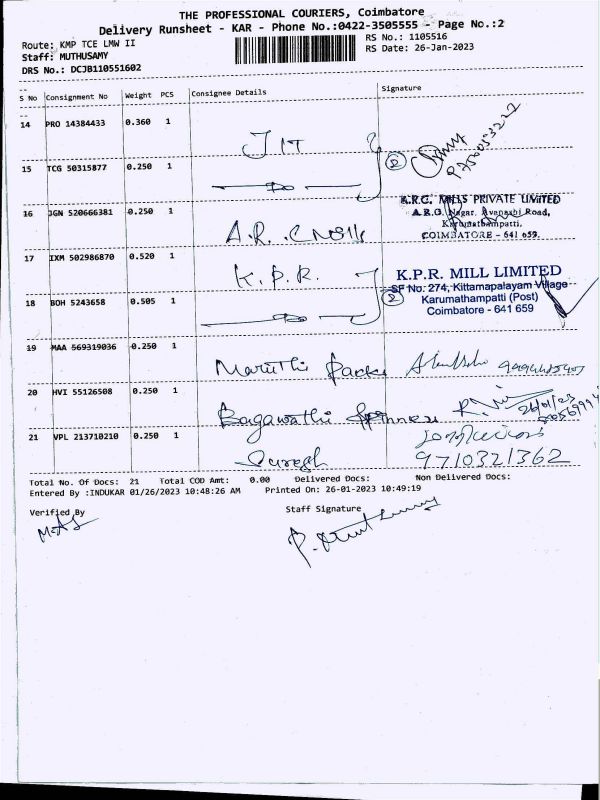 THE PROFESSIONAL COURIERS, Coimbatore
Delivery Runsheet - KAR - Phone No.:0422-3505555 - Page No.:2
Route: KMP TCE LMW II
Staff: MUTHUSAMY
DRS No.: DCJB110551602
RS No.: 1105516
RS Date: 26-Jan-2023
S No Consignment No Weight PCS Consignee Details Signature
14 PRO 14384433 0.360 1
JIT
15 TCG 50315877 0.250 1
2
16 JGN 520666381 0.250 1
A.R.C Mills
A.R.C. MILLS PRIVATE LIMITED
A.R.G. Nagar, Avenashi Road,
Karumathampatti,
COIMBATORE - 641 659.
17 IXM 502986870 0.520 1
K.P.R.
K.P.R. MILL LIMITED
SF No: 274, Kittamapalayam Village
Karumathampatti (Post)
Coimbatore - 641 659
18 BOH 5243658 0.505 1
2
19 MAA 569319036 0.250 1
Maruthi Packs
20 HVI 55126508 0.250 1
Bagawathi Spinners
26/01/23
21 VPL 213710210 0.250 1
Suresh
9710321362
Total No. Of Docs: 21 Total COD Amt: 0.00 Delivered Docs: Non Delivered Docs:
Entered By :INDUKAR 01/26/2023 10:48:26 AM Printed On: 26-01-2023 10:49:19
Verified By
Staff Signature